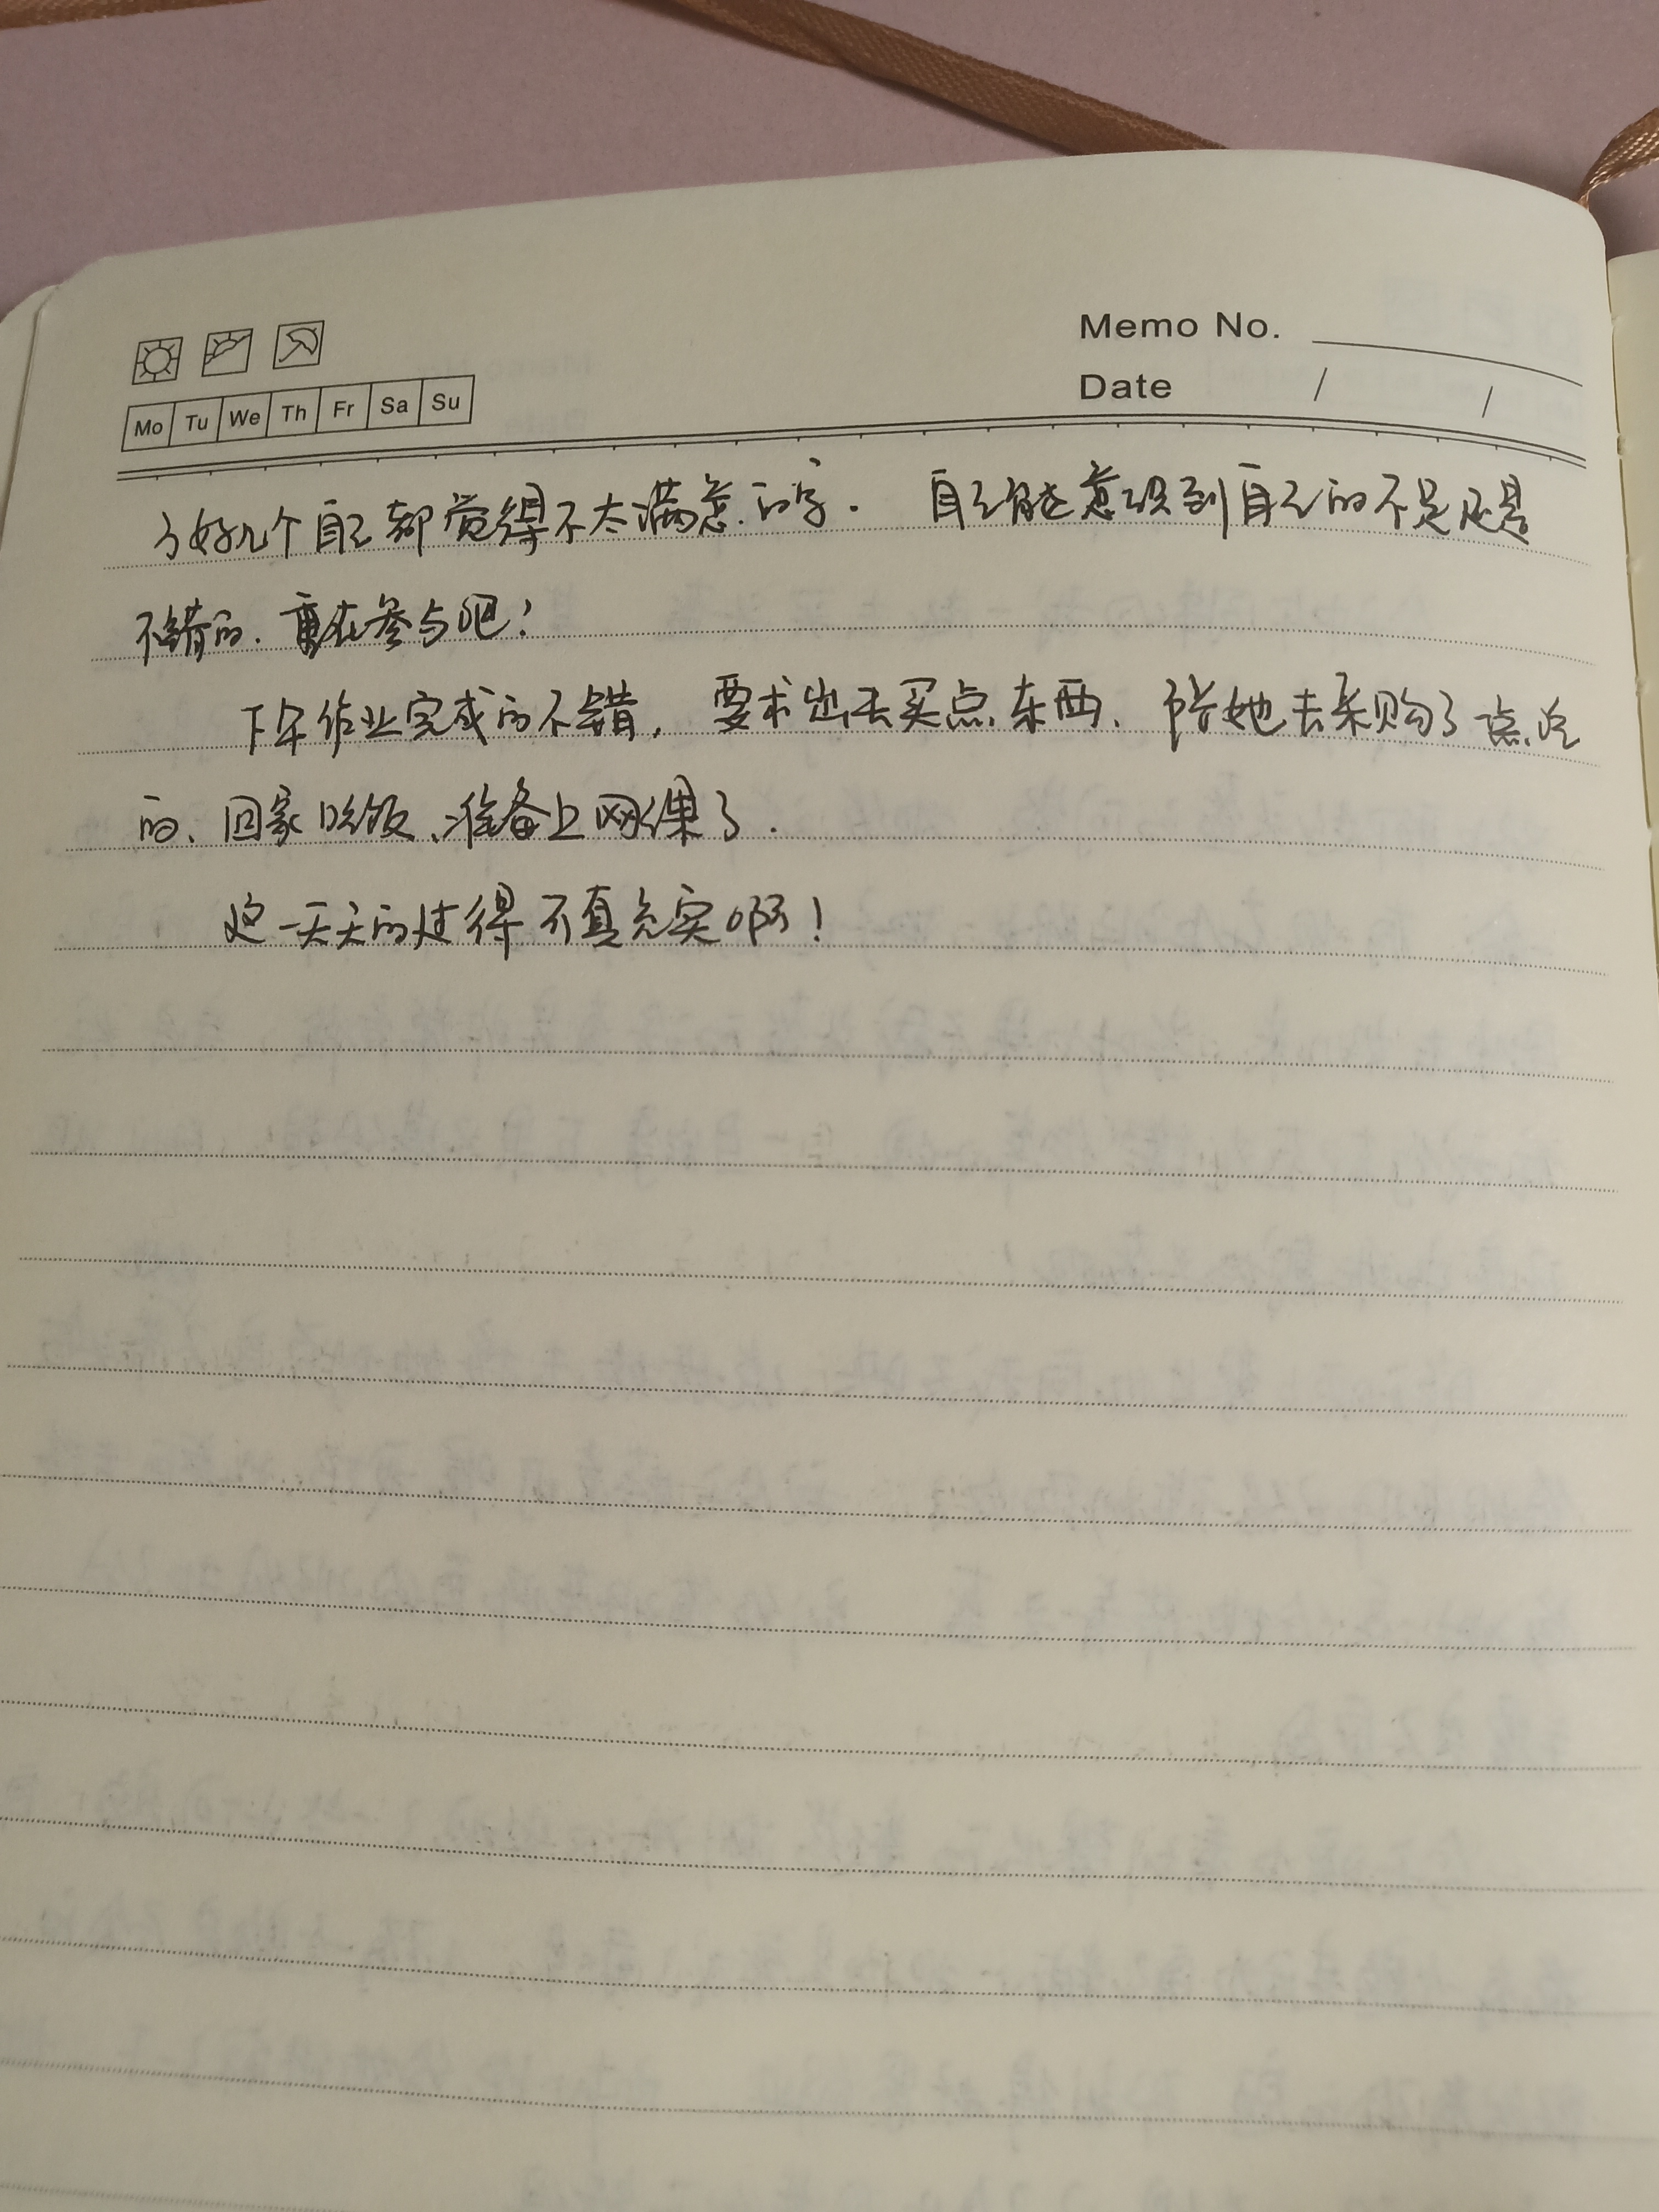 Memo No.
Mo Tu We Th Fr Sa Su
Date / /
了好几个自己都觉得不太满意的字. 自己能意识到自己的不足还是
不错的. 重在参与吧!
下午作业完成的不错, 要求出去买点东西, 陪她去采购了点吃
的、回家吃饭、准备上网课了.
这一天天的过得不真充实啊!